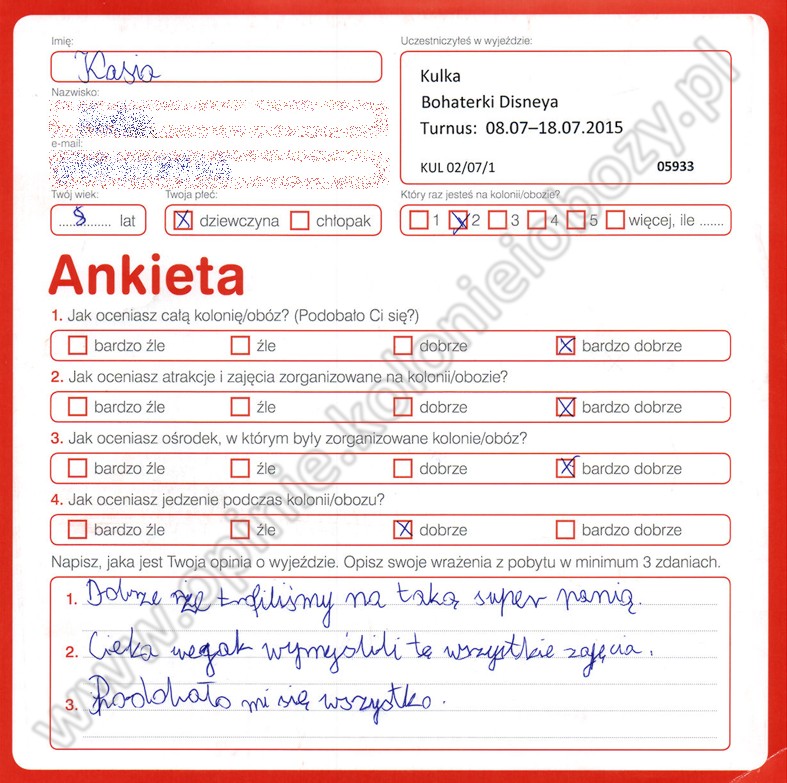 Imię:
Kasia
Uczestniczyłeś w wyjeździe:
Kulka
Bohaterki Disneya
Turnus: 08.07–18.07.2015
KUL 02/07/1 05933
Nazwisko:
e-mail:
Twój wiek:
8 lat
Twoja płeć:
dziewczyna chłopak
Który raz jesteś na kolonii/obozie?
1 2 3 4 5 więcej, ile .......
Ankieta
1. Jak oceniasz całą kolonię/obóz? (Podobało Ci się?)
bardzo źle źle dobrze bardzo dobrze
2. Jak oceniasz atrakcje i zajęcia zorganizowane na kolonii/obozie?
bardzo źle źle dobrze bardzo dobrze
3. Jak oceniasz ośrodek, w którym były zorganizowane kolonie/obóz?
bardzo źle źle dobrze bardzo dobrze
4. Jak oceniasz jedzenie podczas kolonii/obozu?
bardzo źle źle dobrze bardzo dobrze
Napisz, jaka jest Twoja opinia o wyjeździe. Opisz swoje wrażenia z pobytu w minimum 3 zdaniach.
1. Dobrze że trafiliśmy na taką super panią.
2. Cieka we jak wymyślili te wszystkie zajęcia.
3. Podobało mi się wszystko.
www.opinie.kolonieiobozy.pl